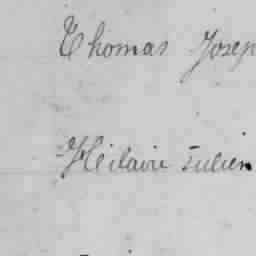 Thomas Josep
Hilaire Julien